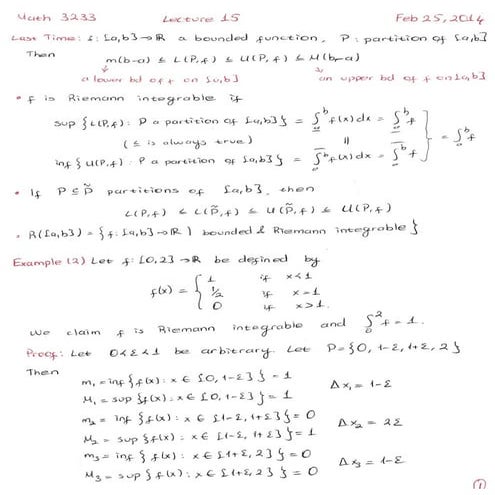 Math 3233 Lecture 15 Feb 25, 2014
Last Time: f: [a,b] → ℝ a bounded function, P: partition of [a,b]
Then m(b-a) ≤ L(P,f) ≤ U(P,f) ≤ M(b-a)
a lower bd of f on [a,b] an upper bd of f on [a,b]
• f is Riemann integrable if
sup {L(P,f) : P a partition of [a,b]} = ∫_a^b f(x)dx = ∫_a^b f
(≤ is always true) || } = ∫_a^b f
inf {U(P,f) : P a partition of [a,b]} = ∫_a^b f(x)dx = ∫_a^b f
• If P ⊆ P̃ partitions of [a,b], then
L(P,f) ≤ L(P̃,f) ≤ U(P̃,f) ≤ U(P,f)
• R([a,b]) = {f: [a,b] → ℝ | bounded & Riemann integrable}
Example (2) Let f: [0,2] → ℝ be defined by
f(x) = { 1 if x<1
1/2 if x=1
0 if x>1.
We claim f is Riemann integrable and ∫_0^2 f = 1.
Proof: Let 0<ε<1 be arbitrary. Let P={0, 1-ε, 1+ε, 2}
Then
m₁ = inf {f(x) : x ∈ [0, 1-ε]} = 1 Δx₁ = 1-ε
M₁ = sup {f(x) : x ∈ [0, 1-ε]} = 1
m₂ = inf {f(x) : x ∈ [1-ε, 1+ε]} = 0 Δx₂ = 2ε
M₂ = sup {f(x) : x ∈ [1-ε, 1+ε]} = 1
m₃ = inf {f(x) : x ∈ [1+ε, 2]} = 0 Δx₃ = 1-ε
M₃ = sup {f(x) : x ∈ [1+ε, 2]} = 0
1